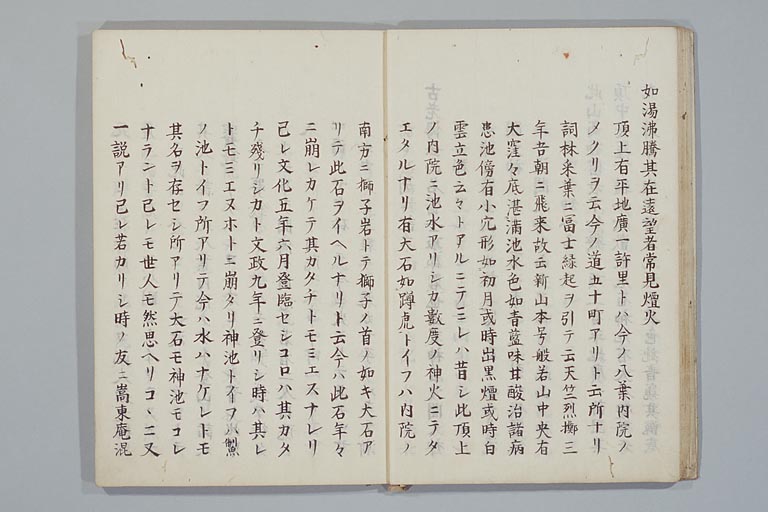 如湯沸騰其在遠望者常見煙火
頂上有平地廣一許里トハ今ノ八葉内院ノ
メクリヲ云今ノ道五十町アリト云所ナリ
詞林采葉ニ冨士縁起ヲ引テ云天竺烈擲三
年吉朝ニ飛来故云新山本号般若山中央有
大窪々底湛満池水色如青藍味甘酸治諸病
患池傍有小穴形如初月或時出黒煙或時白
雲立色云々トアルニテミレハ昔シ此頂上
ノ内院ニ池水アリシカ數度ノ神火ニテタ
エタルナリ有大石如蹲虎トイフハ内院ノ
南方ニ獅子岩トテ獅子ノ首ノ如キ大石ア
リテ此石ヲイヘルナリト云今ハ此石年々
ニ崩レカケテ其カタチトモミエスナレリ
己レ文化五年六月登臨セシコロハ其カタ
チ残リシカト文政九年ニ登リシ時ハ其レ
トモミエヌホトニ崩タリ神池トイフハ
ノ池トイフ所アリテ今ハ水ハナケレトモ
其名ヲ存セシ所アリテ大石モ神池モコレ
ナラント己レモ世人モ然思ヘリコヽニ又
一説アリ己レ若カリシ時ノ友ニ嵩東庵混